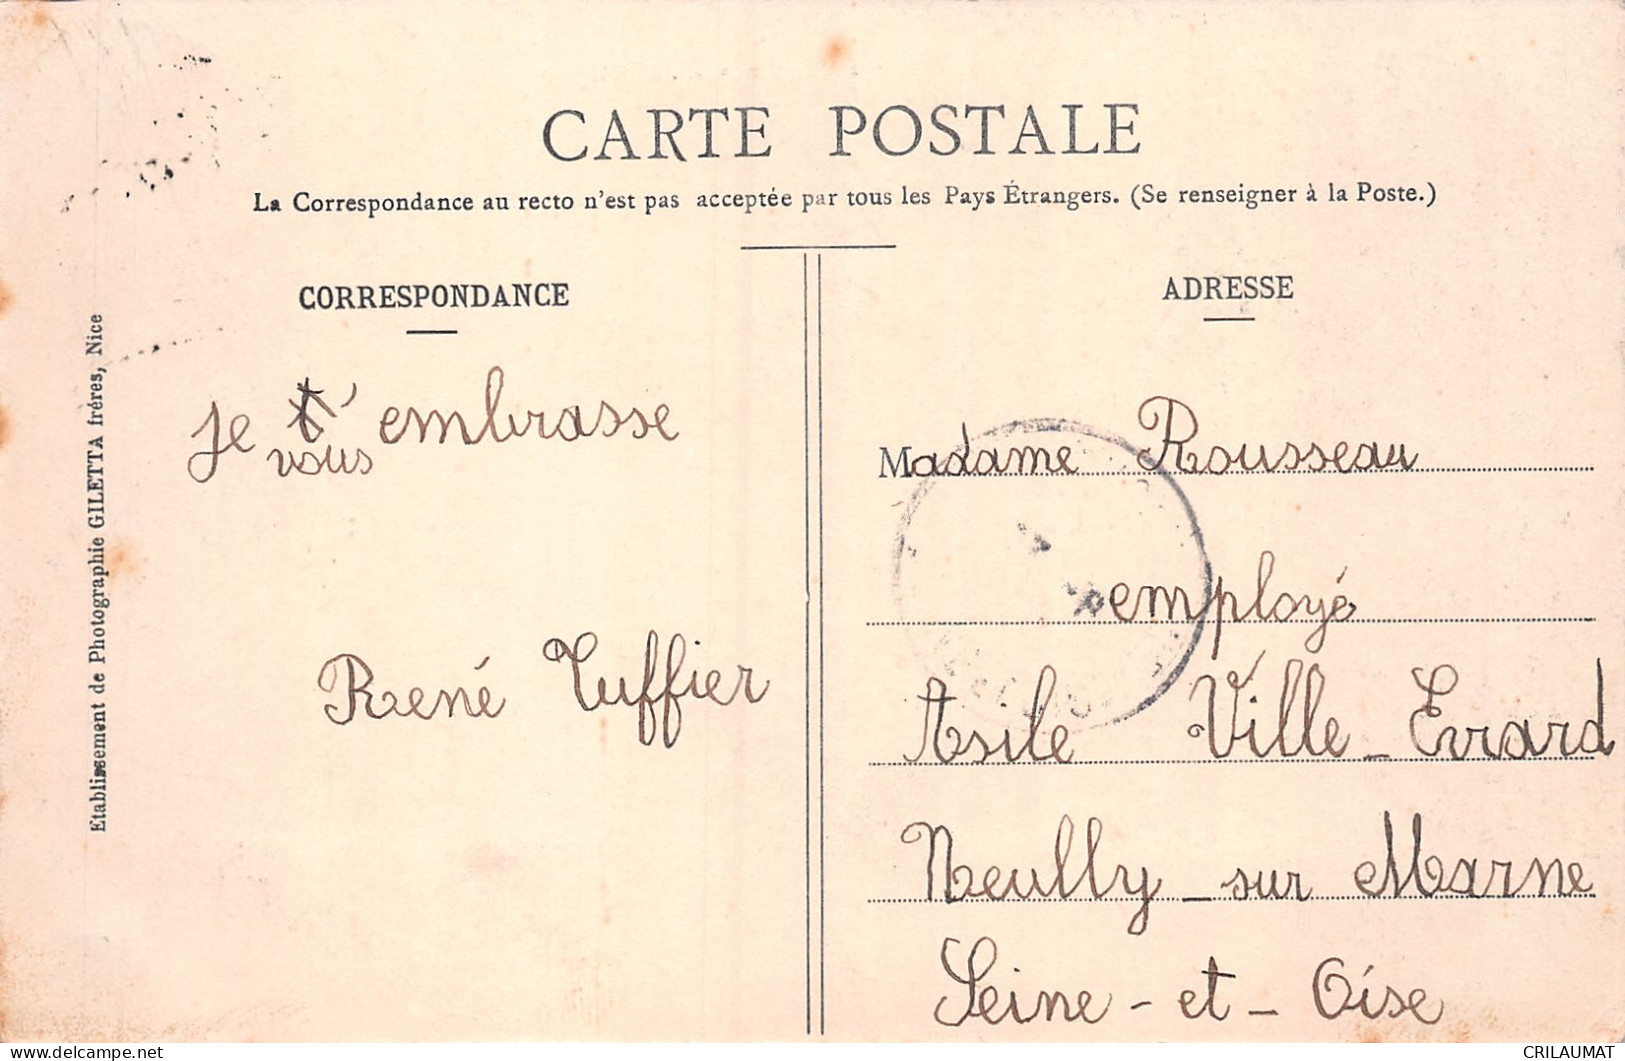 CARTE POSTALE
La Correspondance au recto n'est pas acceptée par tous les Pays Étrangers. (Se renseigner à la Poste.)
CORRESPONDANCE
Je t' embrasse
vous
René Tuffier
Etablissement de Photographie GILETTA frères, Nice
ADRESSE
Madame Rousseau
employé
Asile Ville-Evrard
Neully-sur Marne
Seine-et-Oise
CRILAUMAT